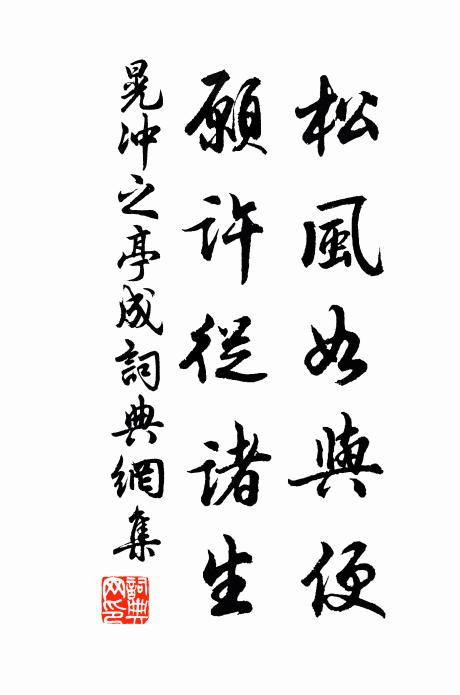 松風如與便
願許從諸生
晁沖之亭成詞典網集
詞典
網印